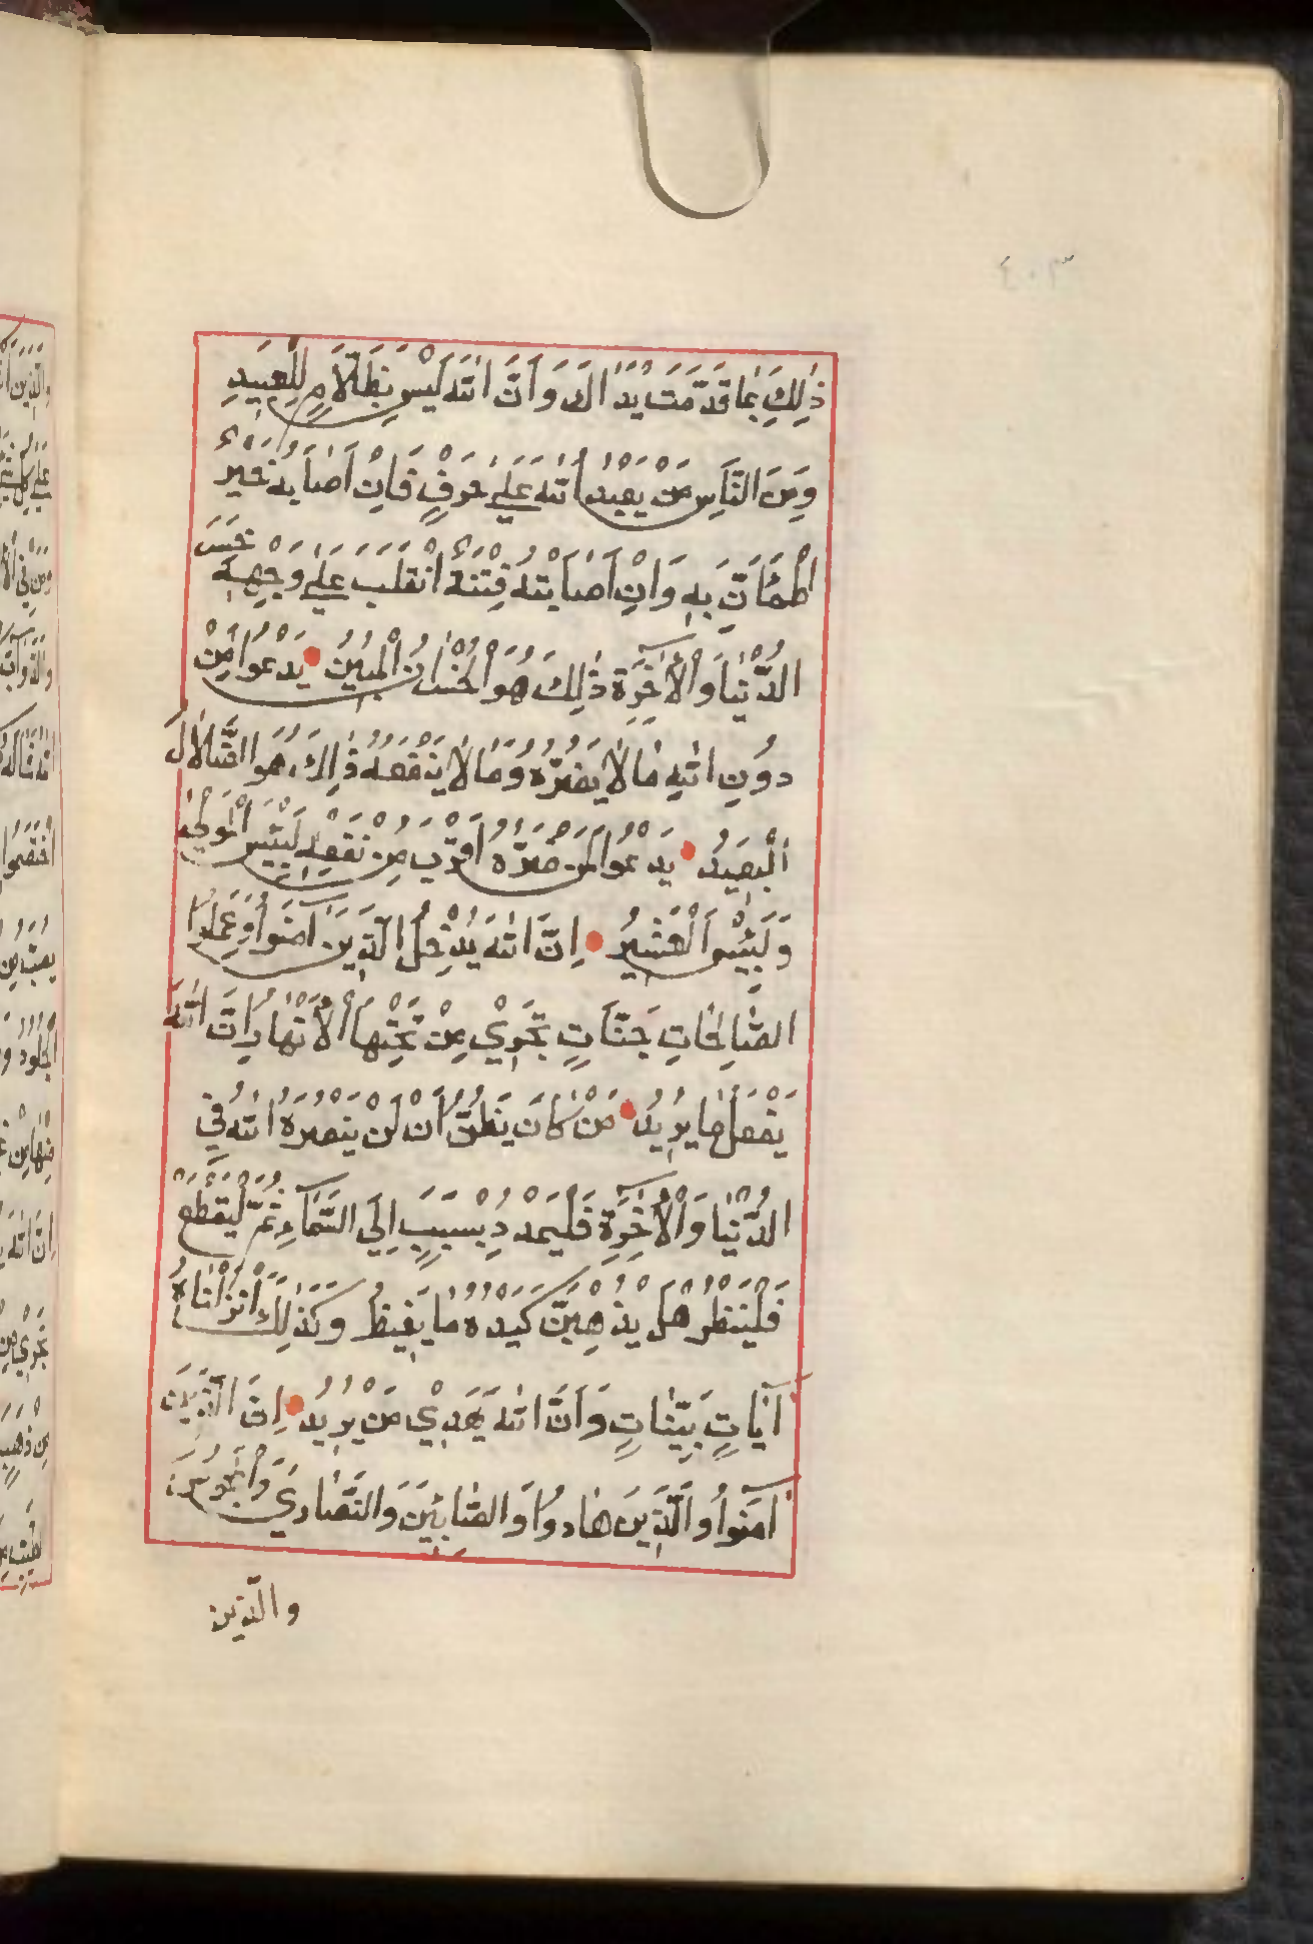 ٤٠٣
ذٰلِكَ بِمَا قَدَّمَتْ يَدَاكَ وَاَنَّ اللّٰهَ لَيْسَ بِظَلَّامٍ لِلْعَبِيدِ
وَمِنَ النَّاسِ مَنْ يَعْبُدُ اللّٰهَ عَلٰى حَرْفٍ فَاِنْ اَصَابَهُ خَيْرٌ
اطْمَأَنَّ بِهِ وَاِنْ اَصَابَتْهُ فِتْنَةٌ انْقَلَبَ عَلٰى وَجْهِهِ خَسِرَ
الدُّنْيَا وَالْاٰخِرَةَ ذٰلِكَ هُوَ الْخُسْرَانُ الْمُبِينُ يَدْعُوا مِنْ
دُونِ اللّٰهِ مَا لَا يَضُرُّهُ وَمَا لَا يَنْفَعُهُ ذٰلِكَ هُوَ الضَّلَالُ
الْبَعِيدُ يَدْعُوا لَمَنْ ضَرُّهُ اَقْرَبُ مِنْ نَفْعِهِ لَبِئْسَ الْمَوْلٰى
وَلَبِئْسَ الْعَشِيرُ اِنَّ اللّٰهَ يُدْخِلُ الَّذِينَ اٰمَنُوا وَعَمِلُوا
الصَّالِحَاتِ جَنَّاتٍ تَجْرِي مِنْ تَحْتِهَا الْاَنْهَارُ اِنَّ اللّٰهَ
يَفْعَلُ مَا يُرِيدُ مَنْ كَانَ يَظُنُّ اَنْ لَنْ يَنْصُرَهُ اللّٰهُ فِي
الدُّنْيَا وَالْاٰخِرَةِ فَلْيَمْدُدْ بِسَبَبٍ اِلَى السَّمَاءِ ثُمَّ لْيَقْطَعْ
فَلْيَنْظُرْ هَلْ يُذْهِبَنَّ كَيْدُهُ مَا يَغِيظُ وَكَذٰلِكَ اَنْزَلْنَاهُ
اٰيَاتٍ بَيِّنَاتٍ وَاَنَّ اللّٰهَ يَهْدِي مَنْ يُرِيدُ اِنَّ الَّذِينَ
اٰمَنُوا وَالَّذِينَ هَادُوا وَالصَّابِئِينَ وَالنَّصَارٰى وَالْمَجُوسَ
والذين